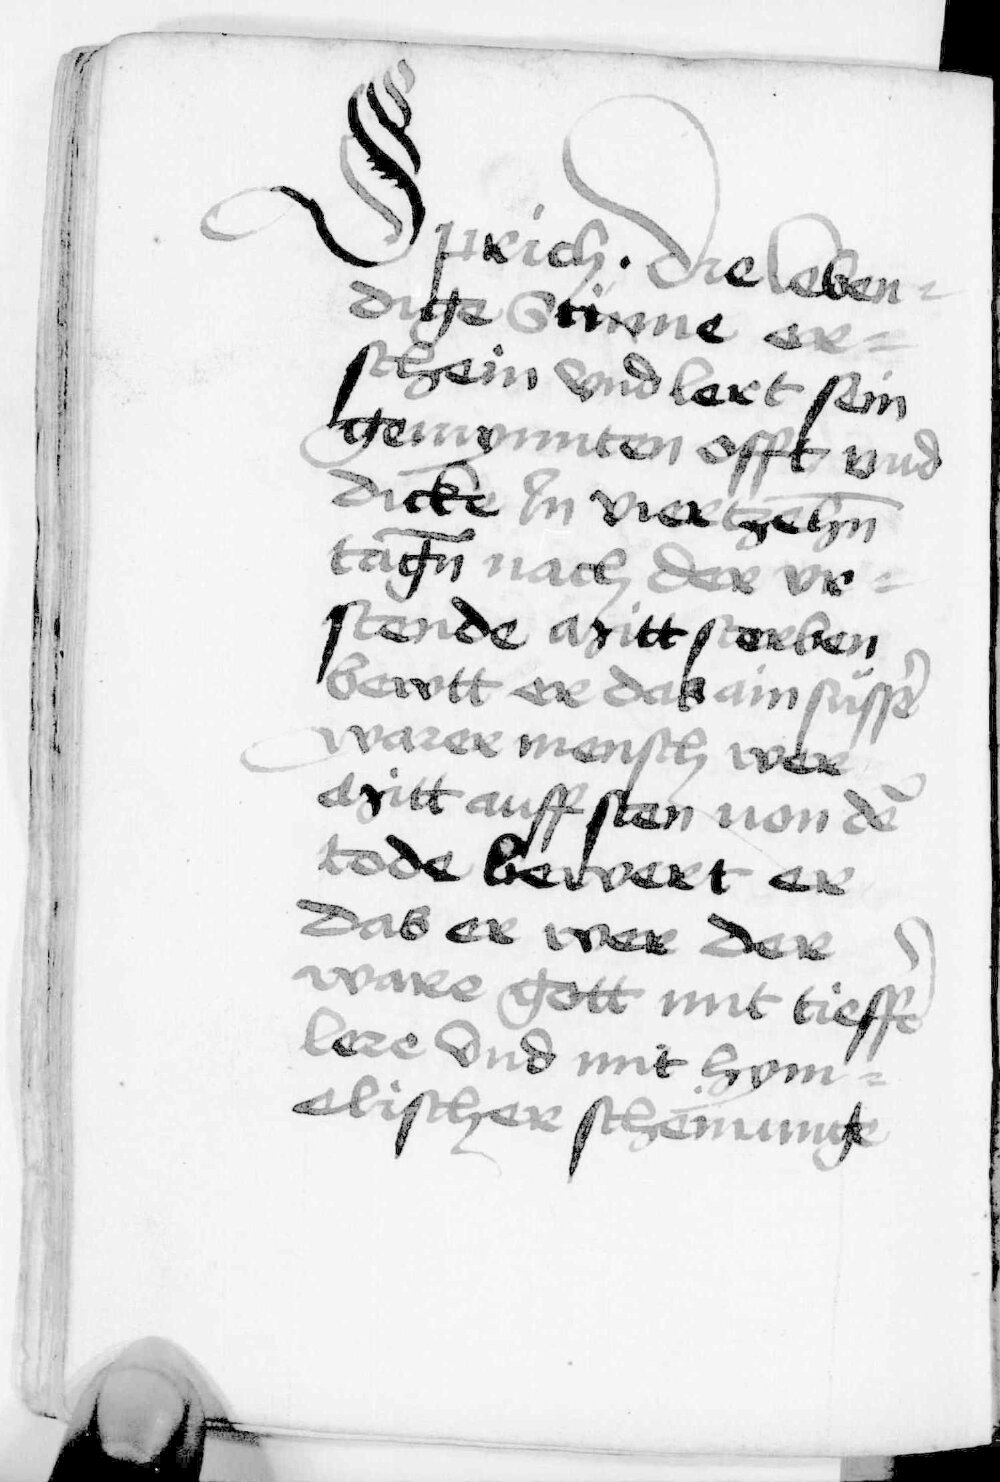 Sprich. Die leben=
dige Stimme er=
schein vnd lert sein
gemynnten offt vnd
dicke In viertzehn̄
tagn̄ nach der vr=
stende Mitt sterben
bewtt er das ain süsser
warer mensch wer
Mitt auffsten von dē
tode bewert er
das er wer der
ware gott mit tieffe
lere Vnd mit hym=
elischer scheinunge